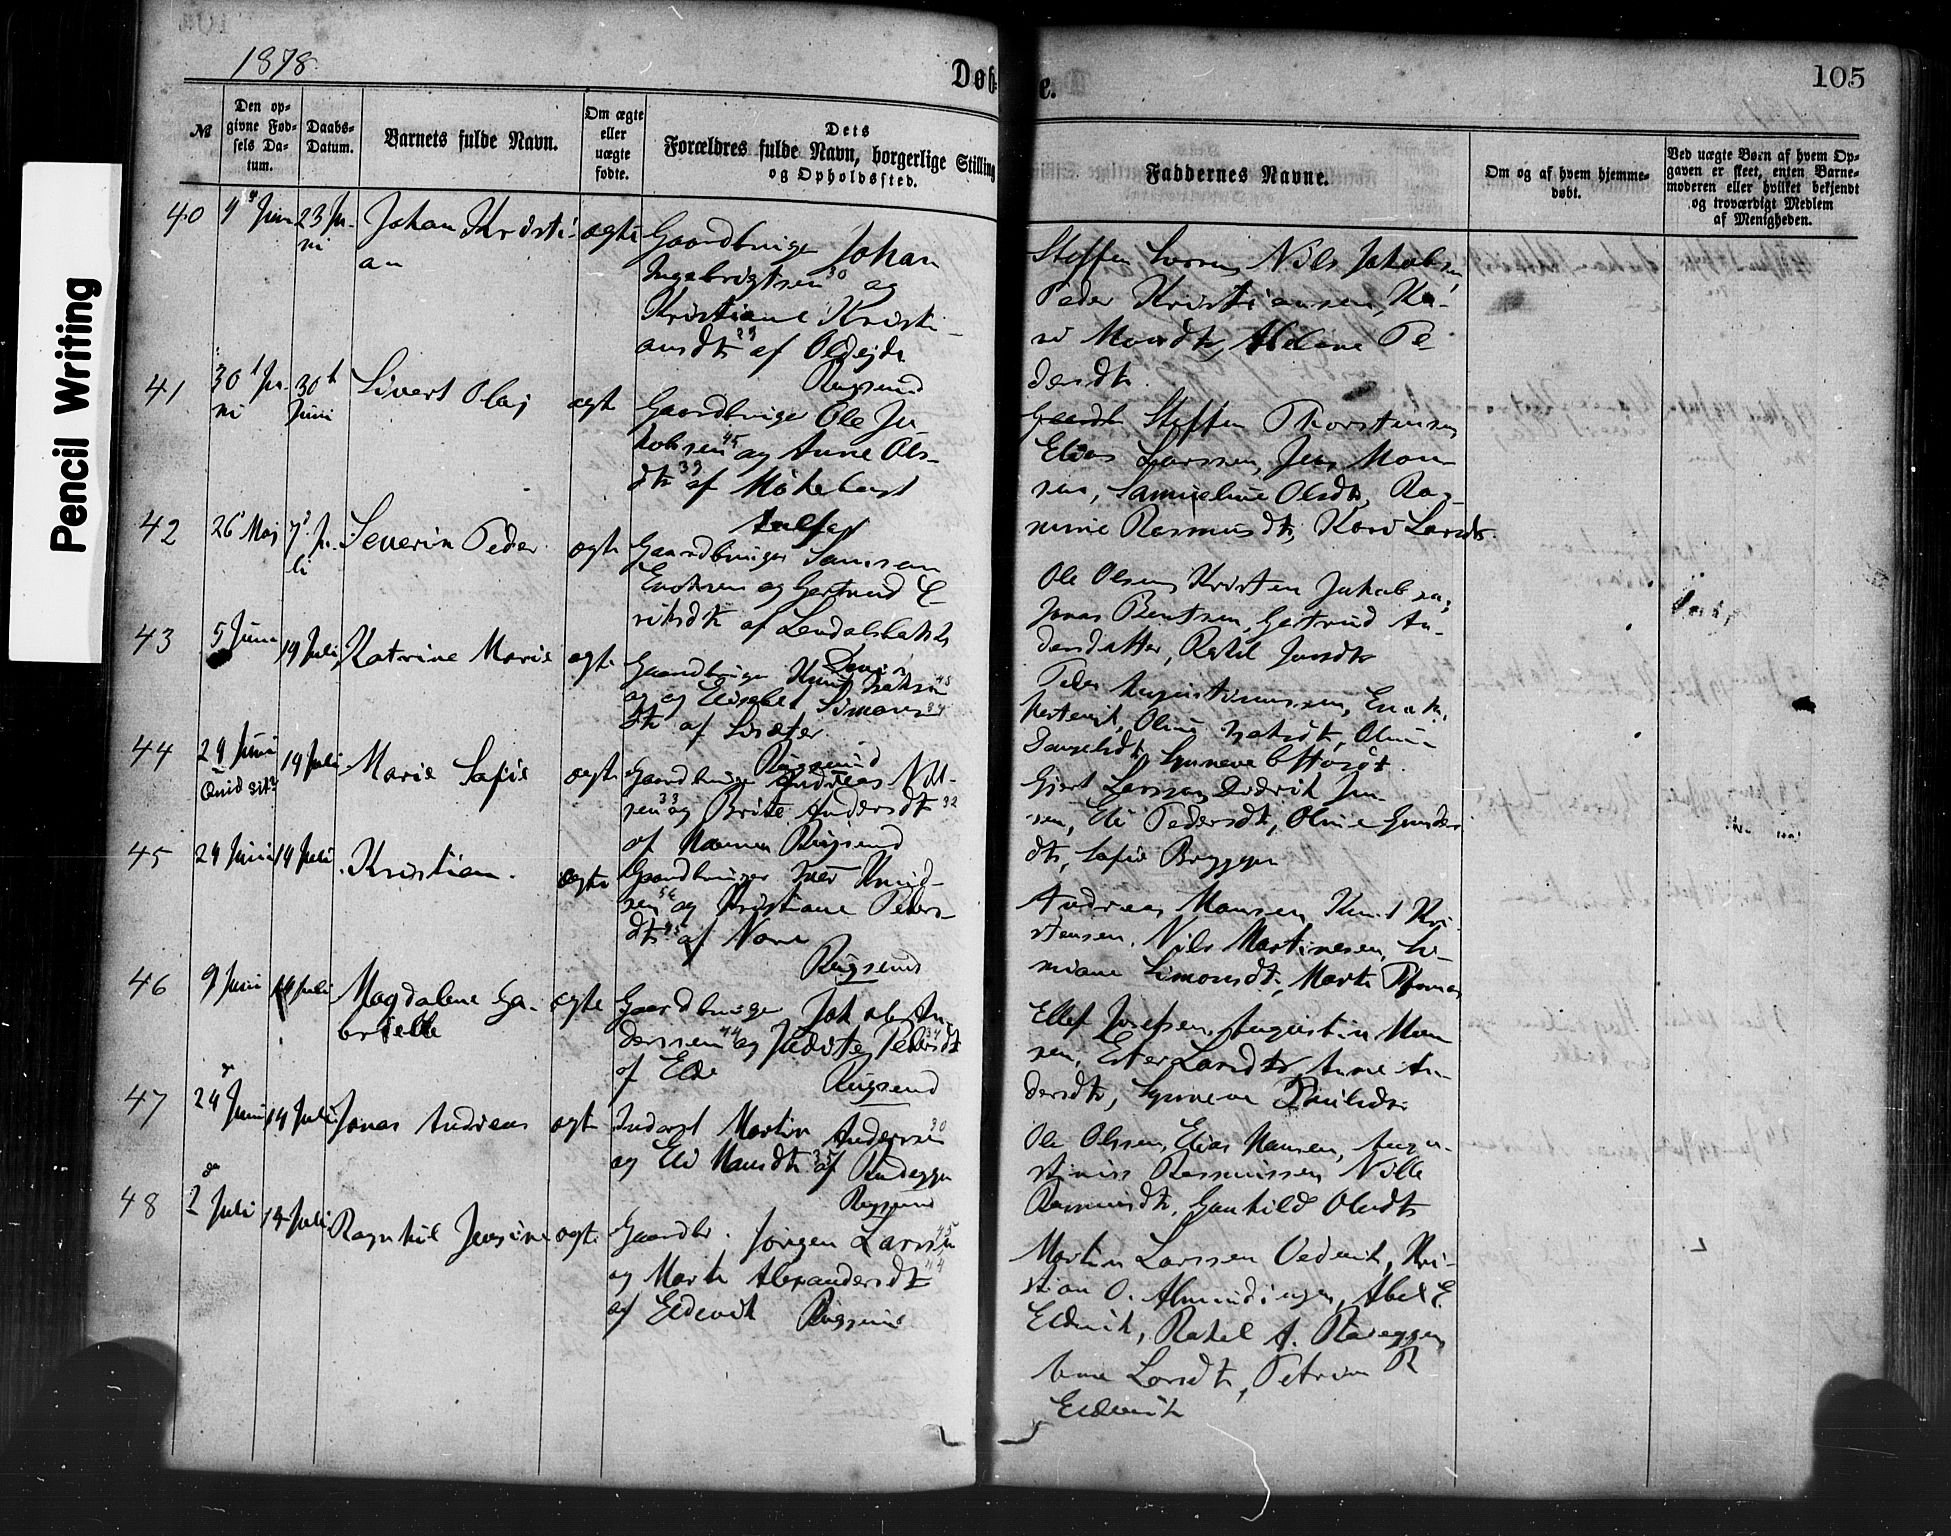 Pencil Writing
1878.
Døb-
e.
105
№
Den op-
givne Fød-
sels Da-
tum.
Daabs-
Datum.
Barnets fulde Navn.
Om ægte
eller
uægte
fødte.
Dets
Forældres fulde Navn, borgerlige Stilling
og Opholdssted.
Faddernes Navne.
Om og af hvem hjemme-
døbt.
Ved uægte Børn af hvem Op-
gaven er skeet, enten Barne-
moderen eller hvilket bekjendt
og troværdigt Medlem
af Menigheden.
40
23 Ju-
ni
Johan Kristi-
an
ægte
Gaardbruger Johan
Ingebrigtsen 30 og
Kristiane Kristi-
ansdtr 29 af Oldeide
Rugsund
Steffen Nils Jakobsen
Peder Kristiansen, Ka-
ri Monsdtr, Abelone Pe-
dersdtr
41
30 Ju-
ni
30 
Juni
Sivert Olaj
ægte
Gaardbruger Ole Ja-
kobsen 45 og Anne Ols-
dtr 39 af
Steffen Thorstensen
Elias Larssen, Jens Mon-
sen, Samueline Olsdtr, Rag-
Rasmusdtr, Kari Larsdtr
42
26 Maj
7 Ju-
li
Severin Peder
ægte
Gaardbruger Samson
Enoksen og Gertrud E-
riksdtr af
Ole Olsen, Kristen Jakobsen,
Jonas Bentsen, Gertrud An-
dersdatter, Rakel Jonsdtr
43
5 Juni
14 Juli
Katrine Marie
ægte
Gaardbruger Knut 45
og Elisabet Simons 34
dtr af
Rugsund
Peder Augustinussen,
44
29 Juni
Quid sit?
14 Juli
Marie Sofie
ægte
Gaardbruger Andreas Nil-
sen 33 og Brite Andersdtr 32
af Rugsund
Gjert Larsson, Didrik Jen-
sen, Eli Pedersdtr, Oline Gunders
dtr, Sofie Bryggen
45
24 Juni
14 Juli
Kristian.
ægte
Gaardbruger Iver Knud-
sen 56 og Kristiane Peders-
dtr 45 af Nore
Rugsund
Andreas Monsen, Knut Kri-
stensen, Nils Martinesen, Si-
moane Simonsdtr, Marte
46
9 Juni
14 Juli
Magdalene Ga-
brielle
ægte
Gaardbruger Jakob An-
derssen 44 og Judite Pedersdtr 34
af Elde
Rugsund
Ellef Josefsen, Augustin Mon
sen, Ester Larsdtr, Anne An-
dersdtr, Synneve
47
24 Juni
14 Juli
Jonas Andreas
ægte
Inderst Martin Andersen 30
og Eli Hansdtr 35 af
Rugsund
Ole Olssen, Elias Hansen, Augu-
stinus Rasmussen, Nille
Rasmusdtr, Gunhild Olsdtr
48
2 Juli
14 Juli
Ragnhil Jensine
ægte
Gaardbr. Jørgen Larssen 45
og Marte Alexandersdtr 44
af Eldevik Rugsund
Martin Larssen Vedvik, Kri-
stian O. Almendingen, Abel E.
Eldevik, Rakel A. Raveggen
Anne Larsdtr, Petrine R
Eldevik